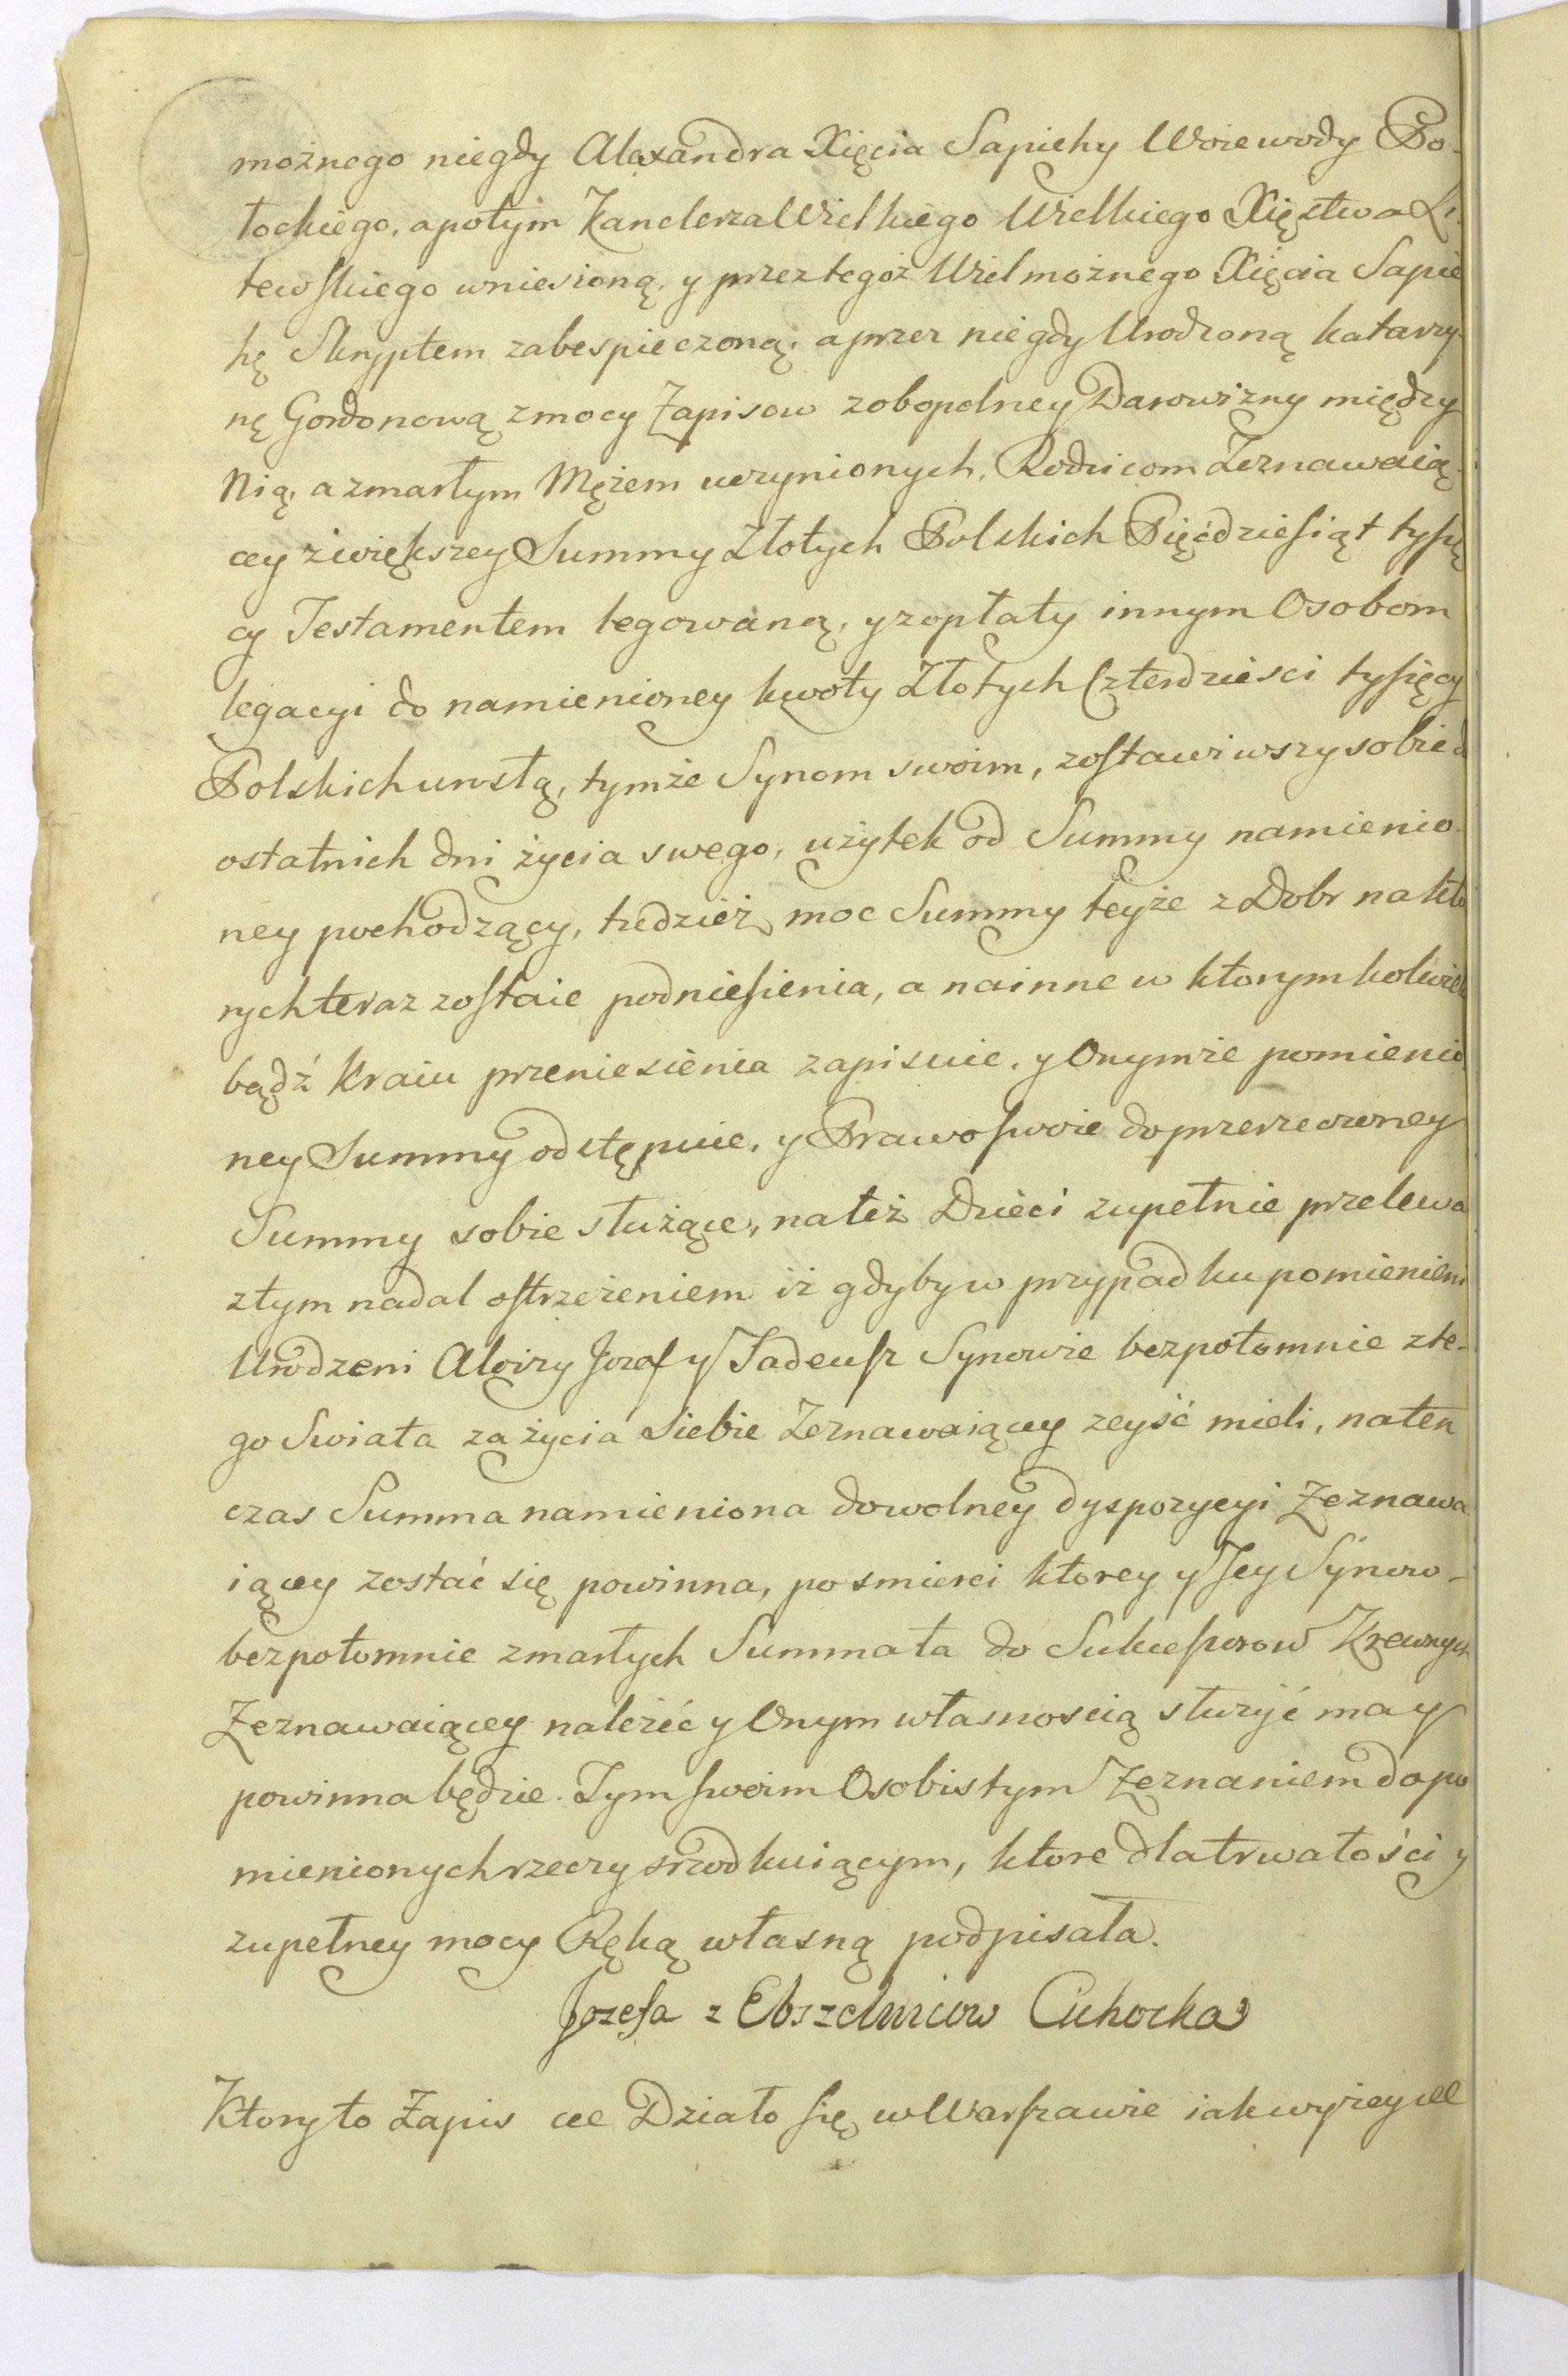 możnego niegdy Alexandra Xięcia Sapiehy Woiewody Po-
łockiego, apotym Kanclerza Wielkiego Wielkiego Xięstwa Li-
tewskiego wniesioną, y przez tegoż Wielmożnego Xięcia Sapie
hę Skryptem zabespieczoną; a przez niegdy Urodzoną Katarzy-
nę Gordonową z mocy Zapisow zobopolney Darowizny między
Nią, a zmarłym Mężem uczynionych, Rodzicom Zeznawaią-
cey z większey Summy Złotych Polskich Pięćdziesiąt tysię
cy Testamentem legowaną, y z opłaty innym Osobom
legacyi do namienioney kwoty Złotych Czterdziesci tysięcy
Polskich urosłą, tymże Synom swoim, zostawiwszy sobie d
ostatnich dni życia swego, użytek od Summy namienio-
ney pochodzący, tudzież moc Summy teyże z Dobr na kto
rych teraz zostaie podniesienia, a na inne w ktorymkolwiek
bądź Kraiu przeniesienia zapisuie, y Onymże pomienio
ney Summy odstępuie, y Prawo swoie do przerzeczoney
Summy sobie służące, na też Dzieci zupełnie przelewa
z tym nadal ostrzeżeniem iż gdyby w przypadku pomienieni
Urodzeni Aloizy Jozef y Tadeusz Synowie bezpotomnie z te-
go Swiata za życia Siebie Zeznawaiącey zeyść mieli, naten
czas Summa namieniona dowolney dyspozycyi Zeznawa
iącey zostać się powinna, po smierci ktorey y Jey Synow-
bezpotomnie zmarłych Summa ta do Sukcessorow Krewnych
Zeznawaiącey należeć y Onym własnoscią służyć ma y
powinna będzie. Tym swoim Osobistym Zeznaniem do po
mienionych rzeczy srzodkuiącym, ktore dla trwałości y
zupełney mocy Ręką własną podpisała.
Jozefa z Ebszelwicow Cichocka
Ktory to Zapis etc Działo się w Warszawie iak wyżey etc